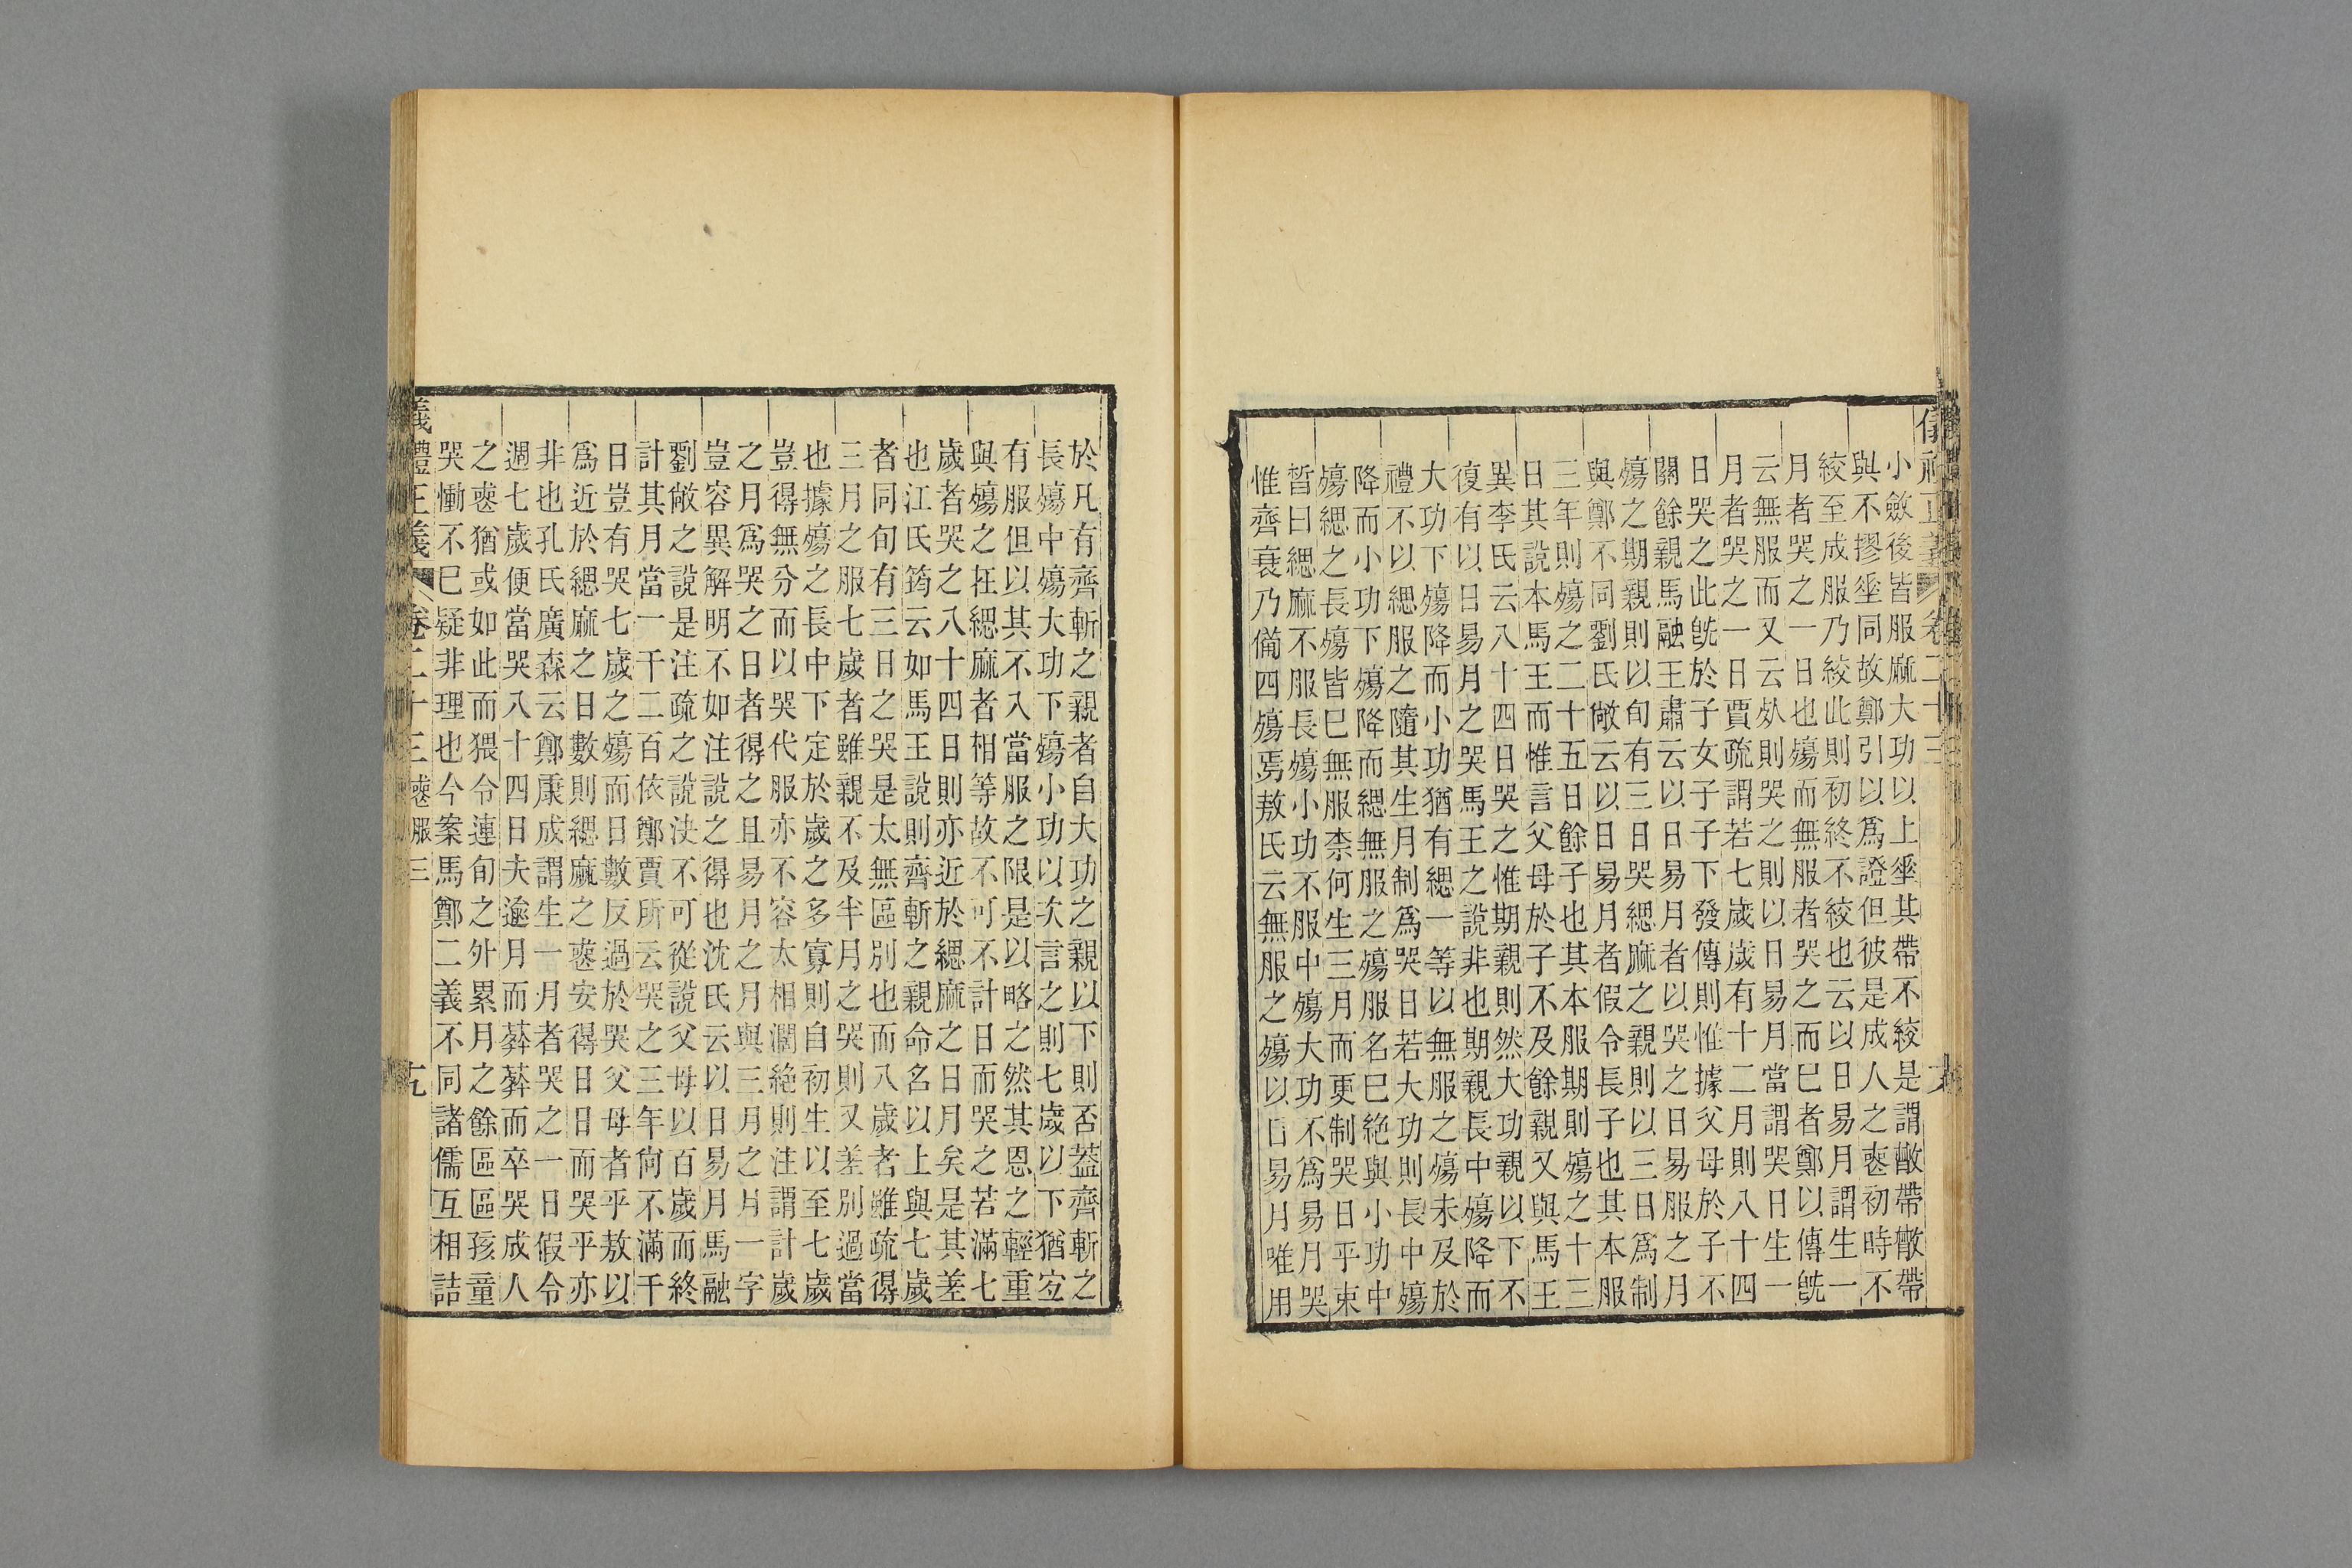 小斂後皆服麻大功以上垂其帶不絞是謂散帶散帶
與不摎垂同故鄭引以爲證但彼是成人之喪初時不
絞至成服乃絞此則初終不絞也云以日易月謂生一
月者哭之一日也殤而無服者哭之而已者鄭以傳旣
云無服而又云䖏則哭之則以日易月當謂哭日生一
月者哭之一日賈疏謂若七歲歲有十二月則八十四
日哭之此旣於子女子子下發傳則惟據父母於子不
關餘親馬融王肅云以日易月者以哭之日易服之月
殤之期親則以旬有三日哭緦麻之親則以三日爲制
與鄭不同劉氏敞云以日易月者假令長子也其本服
三年則殤之二十五日餘子也其本服期則殤之十三
日其說本馬王而惟言父母於子不及餘親又與馬王
異李氏云八十四日哭之惟期親則然大功親以下不
復有以日易月之哭馬王之說非也期親長中殤降而
大功下殤降而小功猶有緦一等以無服之殤未及於
禮不以緦服之隨其生月制爲哭日若大功則長中殤
降而小功下殤降而緦無服之殤服名已絕與小功中
殤緦之長殤皆已無服柰何生三月而更制哭日乎束
晳曰緦麻不服長殤小功不服中殤大功不爲易月哭
惟齊衰乃備四殤焉敖氏云無服之殤以日易月唯用
於凡有齊斬之親者自大功之親以下則否蓋齊斬之
長殤中殤大功下殤小功以次言之則七歲以下猶宐
有服但以其不入當服之限是以略之然其恩之輕重
與殤之在緦麻者相等故不可不計日而哭之若滿七
歲者哭之八十四日則亦近於緦麻之日月矣是其差
也江氏筠云如馬王說則齊斬之親命名以上與七歲
者同旬有三日之哭是太無區別也而八歲者雖疏得
三月之服七歲者雖親不及半月之哭則又差別過當
也據殤之長中下定於歲之多寡則自初生以至七歲
豈得無分而以哭代服亦不容太相濶絶則注謂計歲
之月爲哭之日者得之且易月之月與三月之月一字
豈容異解明不如注說之得也沈氏云以日易月馬融
劉敞之說是注疏之說決不可從說父母以百歲而終
計其月當一千二百依鄭賈所云哭之三年尙不滿千
日豈有哭七歲之殤而日數反過於哭父母者乎敖以
爲近於緦麻之日數則緦麻之喪安得日日而哭乎亦
非也孔氏廣森云鄭康成謂生一月者哭之一日假令
週七歲便當哭八十四日夫逾月而葬葬而卒哭成人
之喪猶或如此而猥令連旬之外累月之餘區區孩童
哭慟不已疑非理也今案馬鄭二義不同諸儒互相詰
禮正義 卷二十三 喪服三